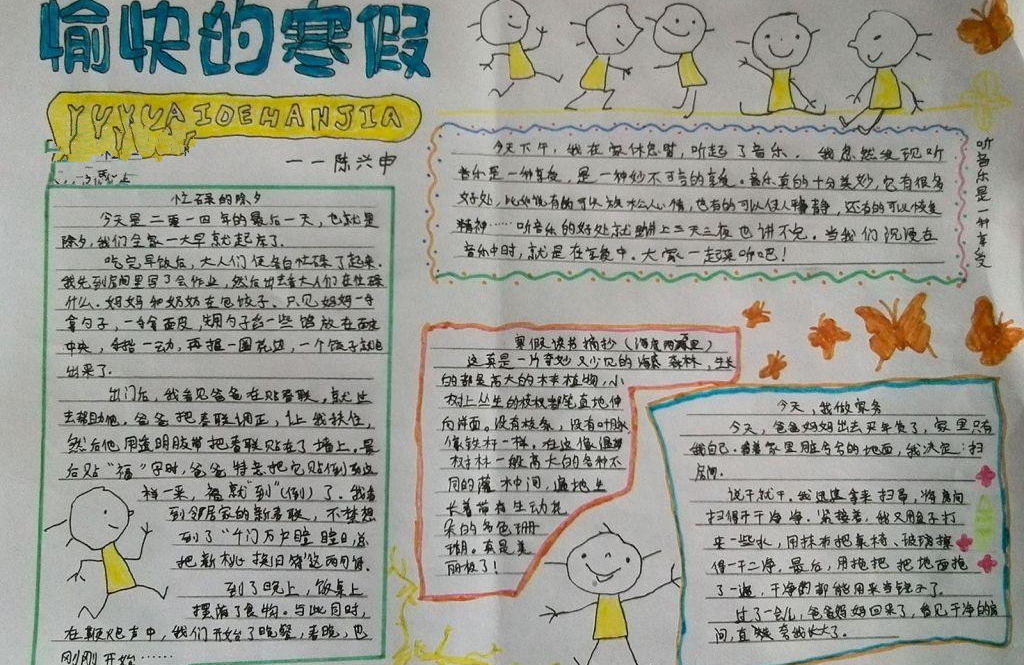 愉快的寒假
YUKUAIDEHANJIA
——陈兴申
忙碌的除夕
今天是二零一四年的最后一天,也就是
除夕,我们全家一大早就起床了。
吃完早饭后,大人们便各自忙碌了起来。
我先到房间里写了会作业,然后出去看大人们在忙碌
什么。妈妈和奶奶在包饺子。只见妈妈一手
拿勺子,一手拿面皮,用勺子舀一些馅放在面皮
中央,手指一动,再捏一圈花边,一个饺子就包
出来了。
出门后,我看见爸爸在贴春联,就上
去帮助他。爸爸把春联调正,让我扶住,
然后他用透明胶带把春联贴在了墙上。最
后贴“福”字时,爸爸特意把它贴倒在这
样一来,福就“到”(倒)了。我看
到邻居家的新春联,不禁想
到了“千门万户曈曈日,总
把新桃换旧符”这两句诗。
到了晚上,饭桌上
摆满了食物。与此同时,
在鞭炮声中,我们开始了晚餐,春晚,也
刚刚开始……
今天下午,我在家休息时,听起了音乐。我忽然发现听
音乐是一种享受,是一种妙不可言的享受。音乐真的十分美妙,它有很多
好处,比如说有的可以放松人心情,也有的可以使人平静,还有的可以恢复
精神……听音乐的好处就算讲上三天三夜也讲不完。当我们沉浸在
音乐中时,就是在享受中。大家一起来听吧!
听音乐是一种享受
寒假读书摘抄(海底两万里)
这真是一片奇妙又少见的海底森林,生长
的都是高大的木本植物,小
树上丛生的枝杈都笔直地伸
向洋面。没有枝条,没有叶脉,
像铁杆一样。在这像温带
树林一般高大的各种不
同的灌木中间,遍地生
长着带有生动花
朵的各色珊
瑚。真是美
丽极了!
今天,我做家务
今天,爸爸妈妈出去买年货了,家里只有
我自己。看着家里脏兮兮的地面,我决定:扫
房间。
说干就干。我迅速拿来扫帚,将房间
扫得干干净净。紧接着,我又用盆子打
来一些水,用抹布把桌椅、玻璃擦
得一干二净。最后,用拖把把地面拖
了一遍,干净的都能用来当镜子了。
过了一会儿,爸爸妈妈回来了,看见干净的房
间,直夸我长大了。